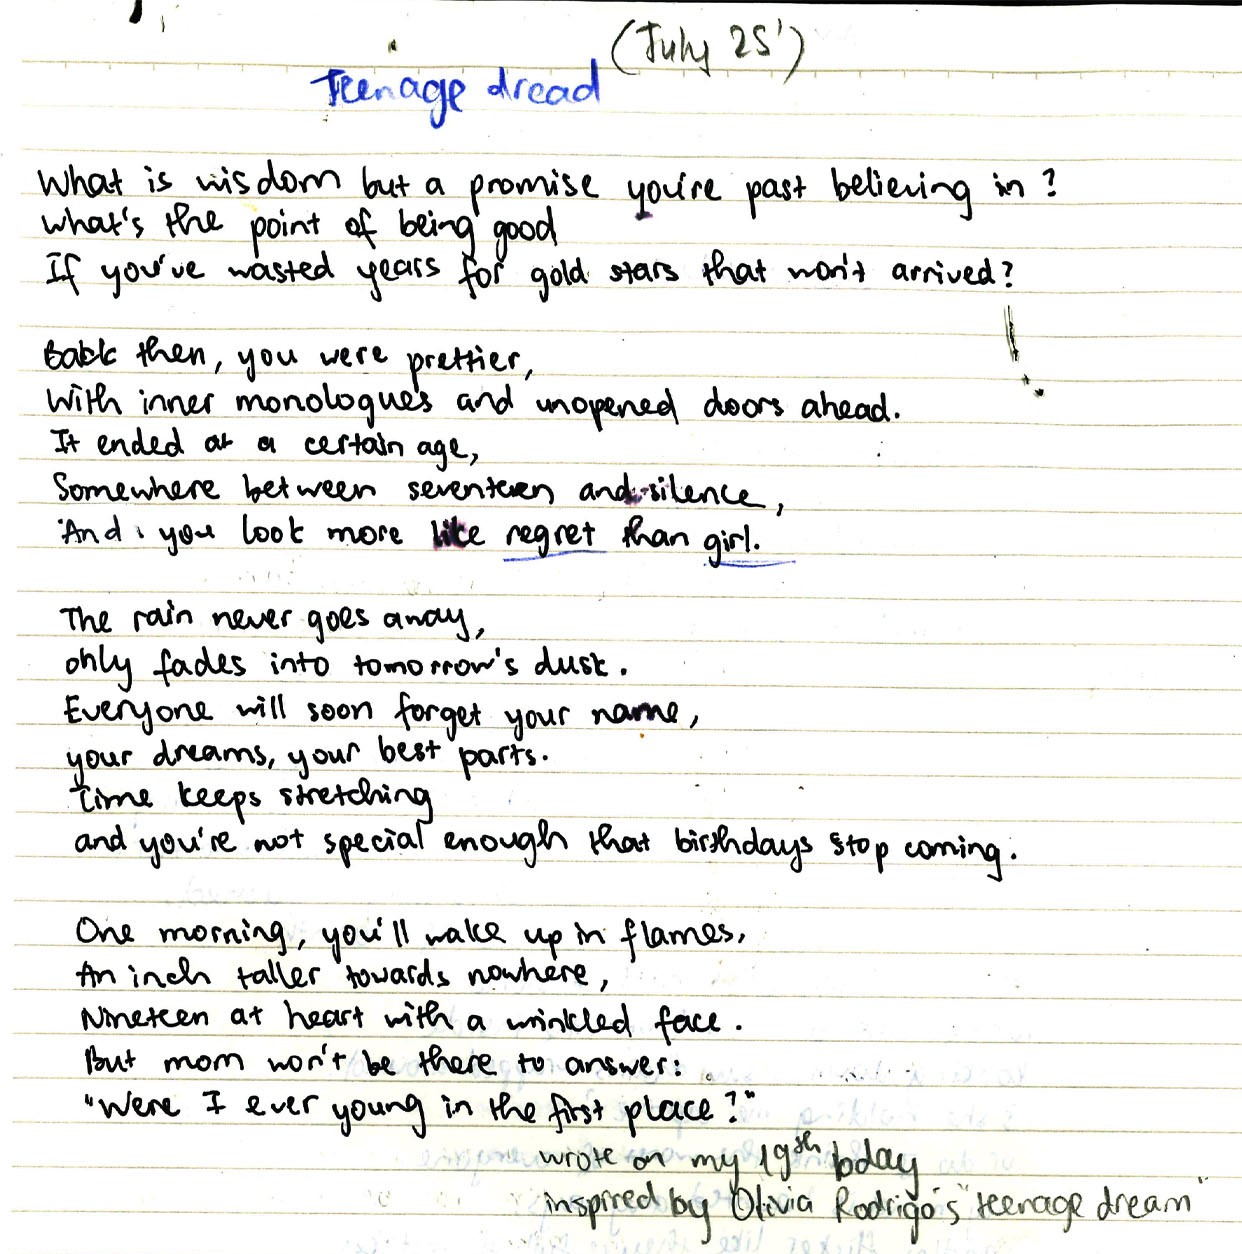 (July 25')
Teenage dread
What is wisdom but a promise you're past believing in?
What's the point of being good
If you've wasted years for gold stars that won't arrived?
Back then, you were prettier,
With inner monologues and unopened doors ahead.
It ended at a certain age,
Somewhere between seventeen and silence,
And you look more like regret than girl.
The rain never goes away,
only fades into tomorrow's dusk.
Everyone will soon forget your name,
your dreams, your best parts.
Time keeps stretching
and you're not special enough that birthdays stop coming.
One morning, you'll wake up in flames,
An inch taller towards nowhere,
Nineteen at heart with a wrinkled face.
But mom won't be there to answer:
"Were I ever young in the first place?"
wrote on my 19th bday
inspired by Olivia Rodrigo's "teenage dream"